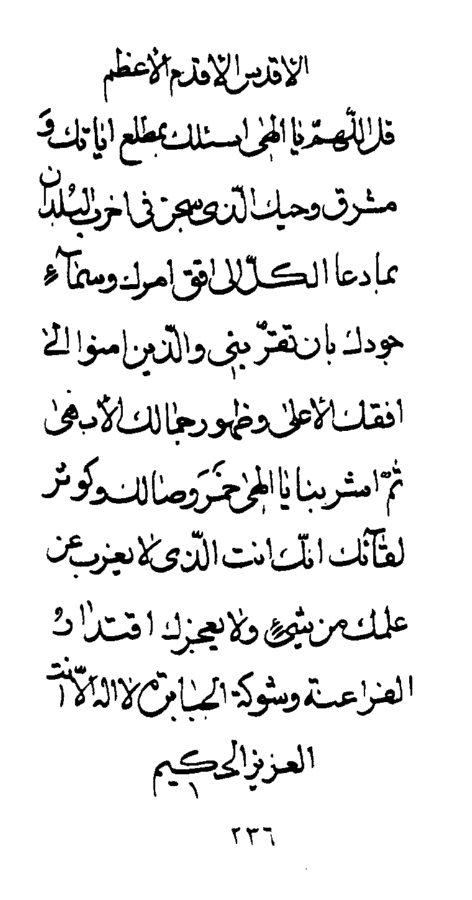 الاقدس الاقدم الاعظم
قل اللّهمّ يا الهى اسئلك بمطلع اياتك وَ
مشرق وحيك الّذى سجن فى اخرب البُلدان
بما دعا الكلّ الى افق امرك وسمآءِ
جودك بان تقرّبنى والّذين امنوا الى
افقك الاعلى وظهور جمالك الابهى
ثمّ اشربنا يا الهى خمَرَ وصالك وكوثر
لقآئك انّك انت الّذى لا يعزب عن
علمك من شيءٍ ولا يعجزك اقتدارُ
الفراعنة وشوكة الجبابرة لا اله الّا انت
العزيز الحكيم
٢٣٦